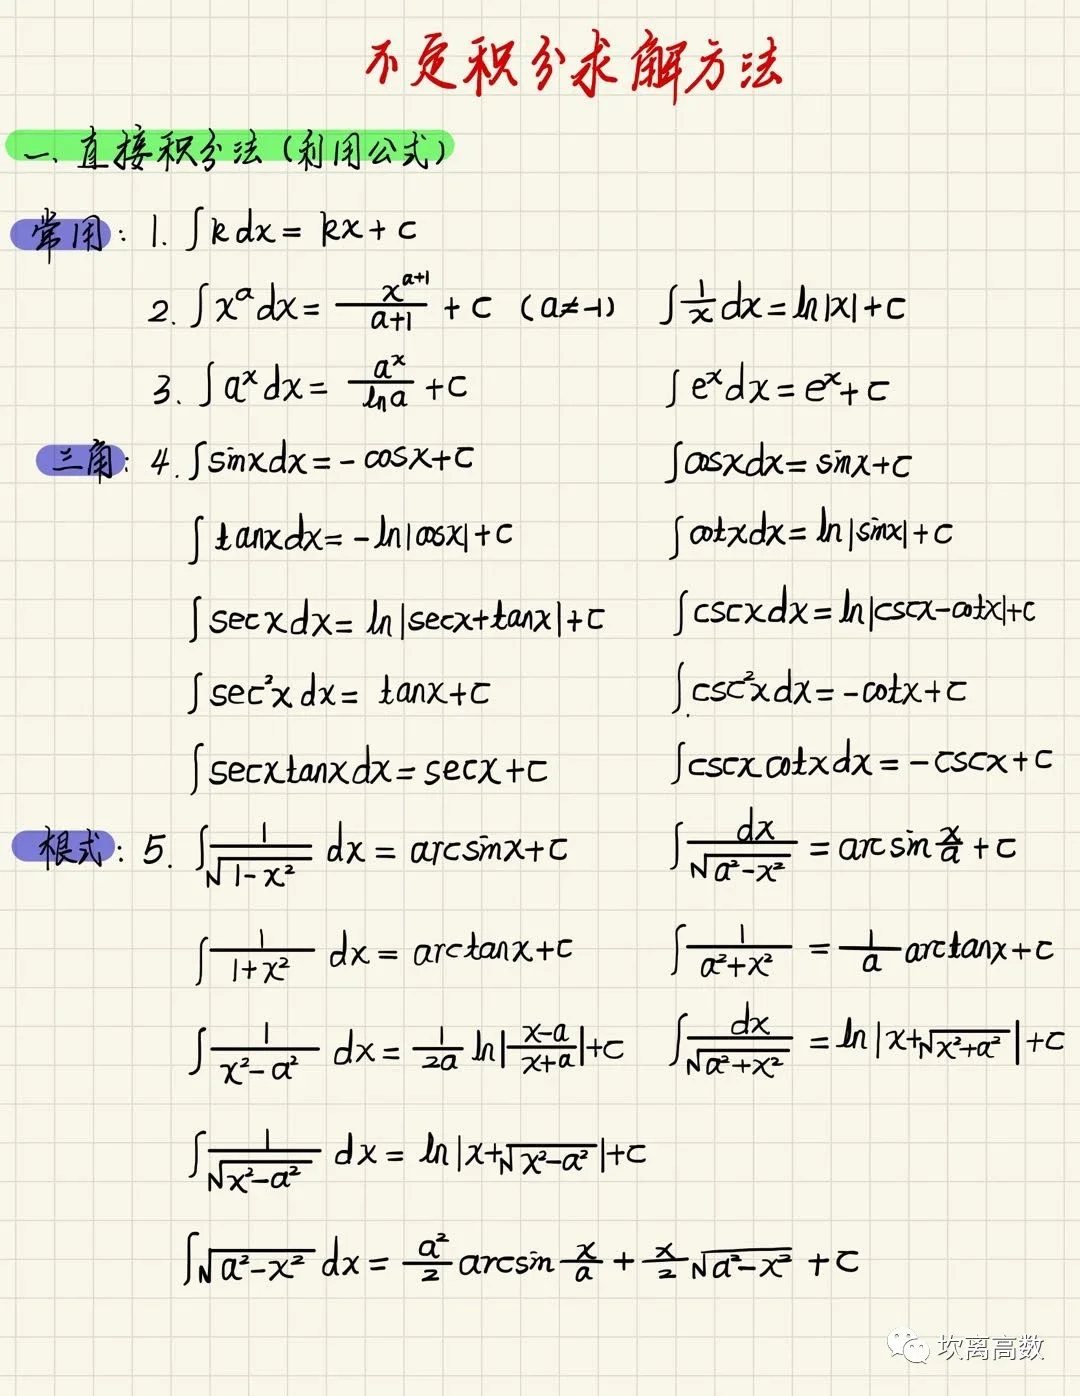 不定积分求解方法
一、直接积分法(利用公式)
常用: 1. ∫k dx = kx + C
2. ∫x^a dx = x^(a+1)/(a+1) + C (a≠-1) ∫1/x dx = ln|x| + C
3. ∫a^x dx = a^x/ln a + C ∫e^x dx = e^x + C
三角: 4. ∫sinx dx = -cosx + C ∫cosx dx = sinx + C
∫tanx dx = -ln|cosx| + C ∫cotx dx = ln|sinx| + C
∫secx dx = ln|secx+tanx| + C ∫cscx dx = ln|cscx-cotx| + C
∫sec²x dx = tanx + C ∫csc²x dx = -cotx + C
∫secxtanx dx = secx + C ∫cscxcotx dx = -cscx + C
根式: 5. ∫1/√(1-x²) dx = arcsinx + C ∫dx/√(a²-x²) = arcsin x/a + C
∫1/(1+x²) dx = arctanx + C ∫1/(a²+x²) = 1/a arctanx + C
∫1/(x²-a²) dx = 1/2a ln|(x-a)/(x+a)| + C ∫dx/√(a²+x²) = ln|x+√(x²+a²)| + C
∫1/√(x²-a²) dx = ln|x+√(x²-a²)| + C
∫√(a²-x²) dx = a²/2 arcsin x/a + x/2 √(a²-x²) + C
坎离高数